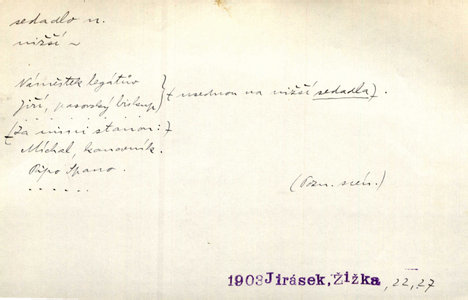 sedadlo n.
nižší ~
Náměstek legátův
Jiří, pasovský biskup } (usednou na nižší sedadla).
(Za nimi stanou:)
Michal, kanovník.
Pipo Spano.
. . . . . .
(Pozn. scén.)
1903 Jirásek, Žižka, 22, 27